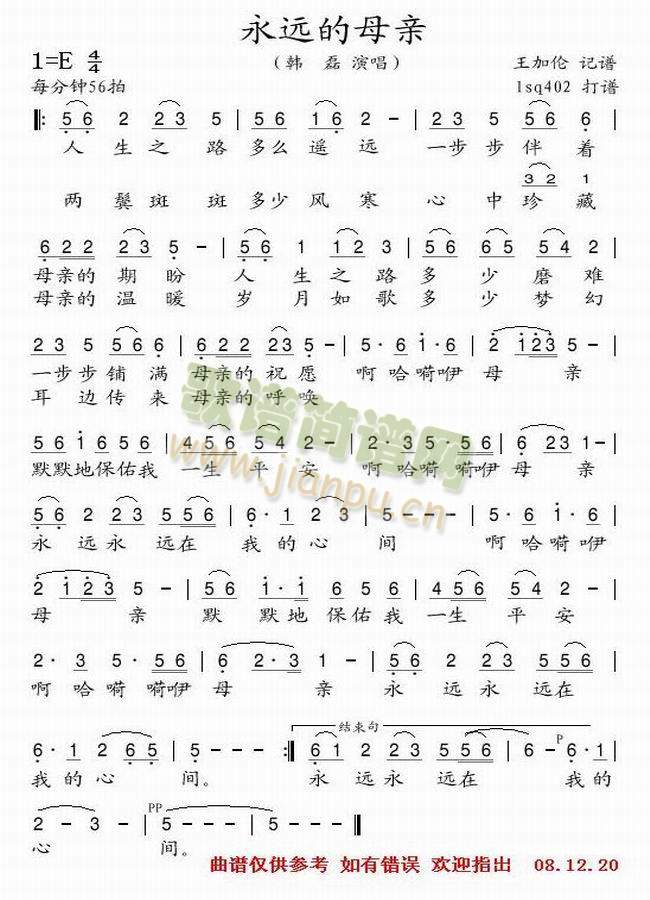 永远的母亲
1=E 4/4 （韩 磊 演唱） 王加伦 记谱
每分钟56拍 lsq402 打谱
‖: 5 6 2 2 3 5 | 5 6 1 6 - | 2 3 5 5 6 6 |
人生之路多么遥远 一步步伴着
3 2 1
两鬓斑斑多少风寒 心中珍藏
6 2 2 2 3 5 - | 5 6 1 1 2 3 | 5 6 5 6 2 - |
母亲的期盼 人生之路多少磨难
母亲的温暖 岁月如歌多少梦幻
2 3 5 5 6 6 | 6 2 2 2 3 5 | 5· 6 1· 6 | 2 1 2 3 5 - |
一步步铺满 母亲的祝愿 啊哈嗬咿母亲
耳边传来 母亲的呼唤
5 6 1 6 5 6 | 4 5 6 5 4 2 | 2· 3 5· 5 6 | 6 2 3 1 - |
默默地保佑我一生平安 啊哈嗬嗬咿母亲
5 6 2 2 3 5 5 6 | 6· 1 2 3 | 5 - - - | 5· 6 1· 6 |
永远永远在 我的心间 啊哈嗬咿
2 1 2 3 5 - | 5 6 1· 1 | 6 5 6 5 6 | 4 5 6 5 4 2 |
母亲 默默地保佑我一生平安
2· 3 5· 5 6 | 6 2· 3 1 - | 5 6 2 2 3 5 5 6 |
啊哈嗬嗬咿母亲 永远永远在
结束句
6· 1 2 6 5 | 5 - - - :‖ 6 1 2 2 3 5 5 6 | 6 - P 6· 1 |
我的心间。 永远永远在 我的
2 - 3 - | PP 5 - - - | 5 - - - ‖
心间。
曲谱仅供参考 如有错误 欢迎指出 08.12.20
歌谱简谱网
www.jianpu.cn